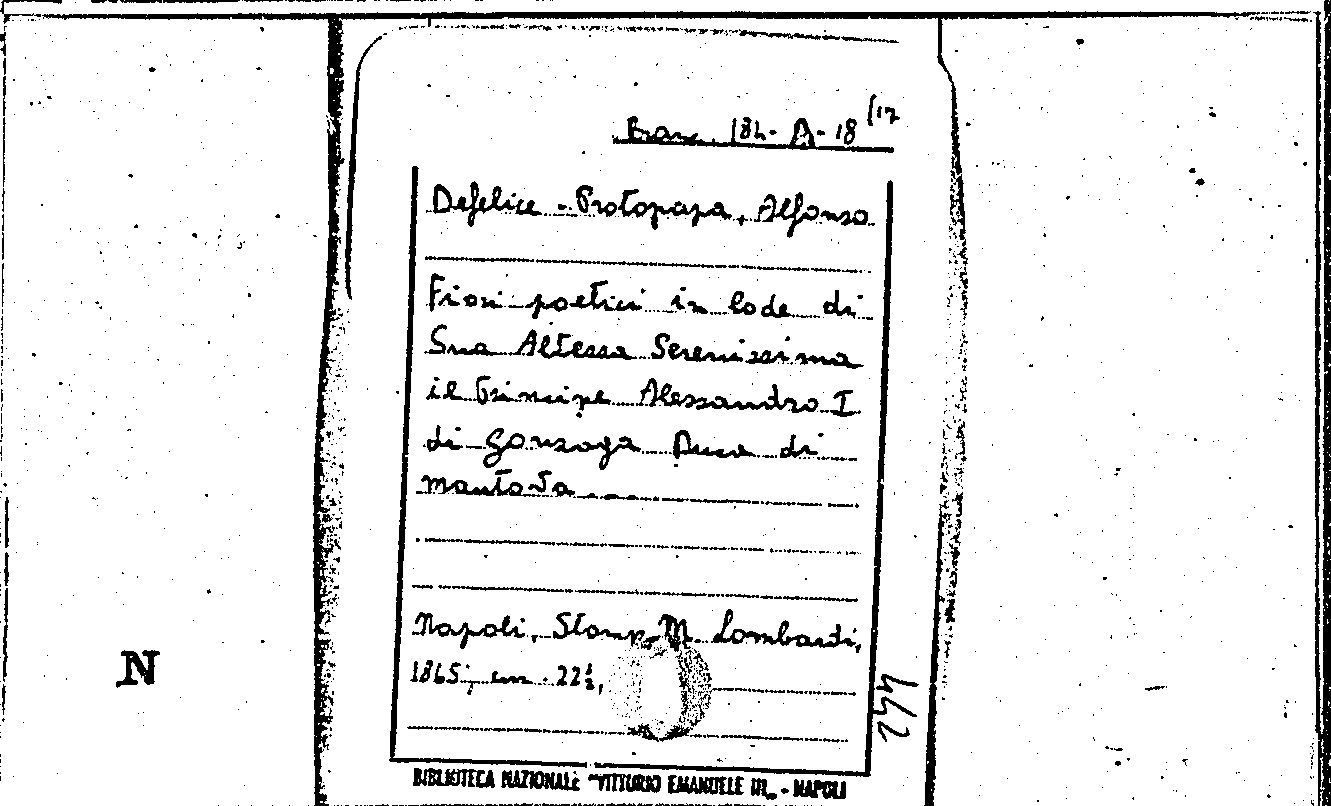 Branc. 184-A-18 (17
Defelice - Protopapa, Alfonso
Fiori poetici in lode di
Sua Altezza Serenissima
il Principe Alessandro I
di Gonzaga Duca di
Mantova ...
Napoli, Stamp. M. Lombardi,
1865; cm. 22½,
442
N
BIBLIOTECA NAZIONALE "VITTORIO EMANUELE III„ - NAPOLI